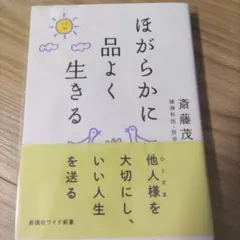 ほがらかに
品よく
生きる
斎藤茂
精神科医・
他人様を
ひとさま
大切にし、
いい人生
を送る
新講社ワイド新書